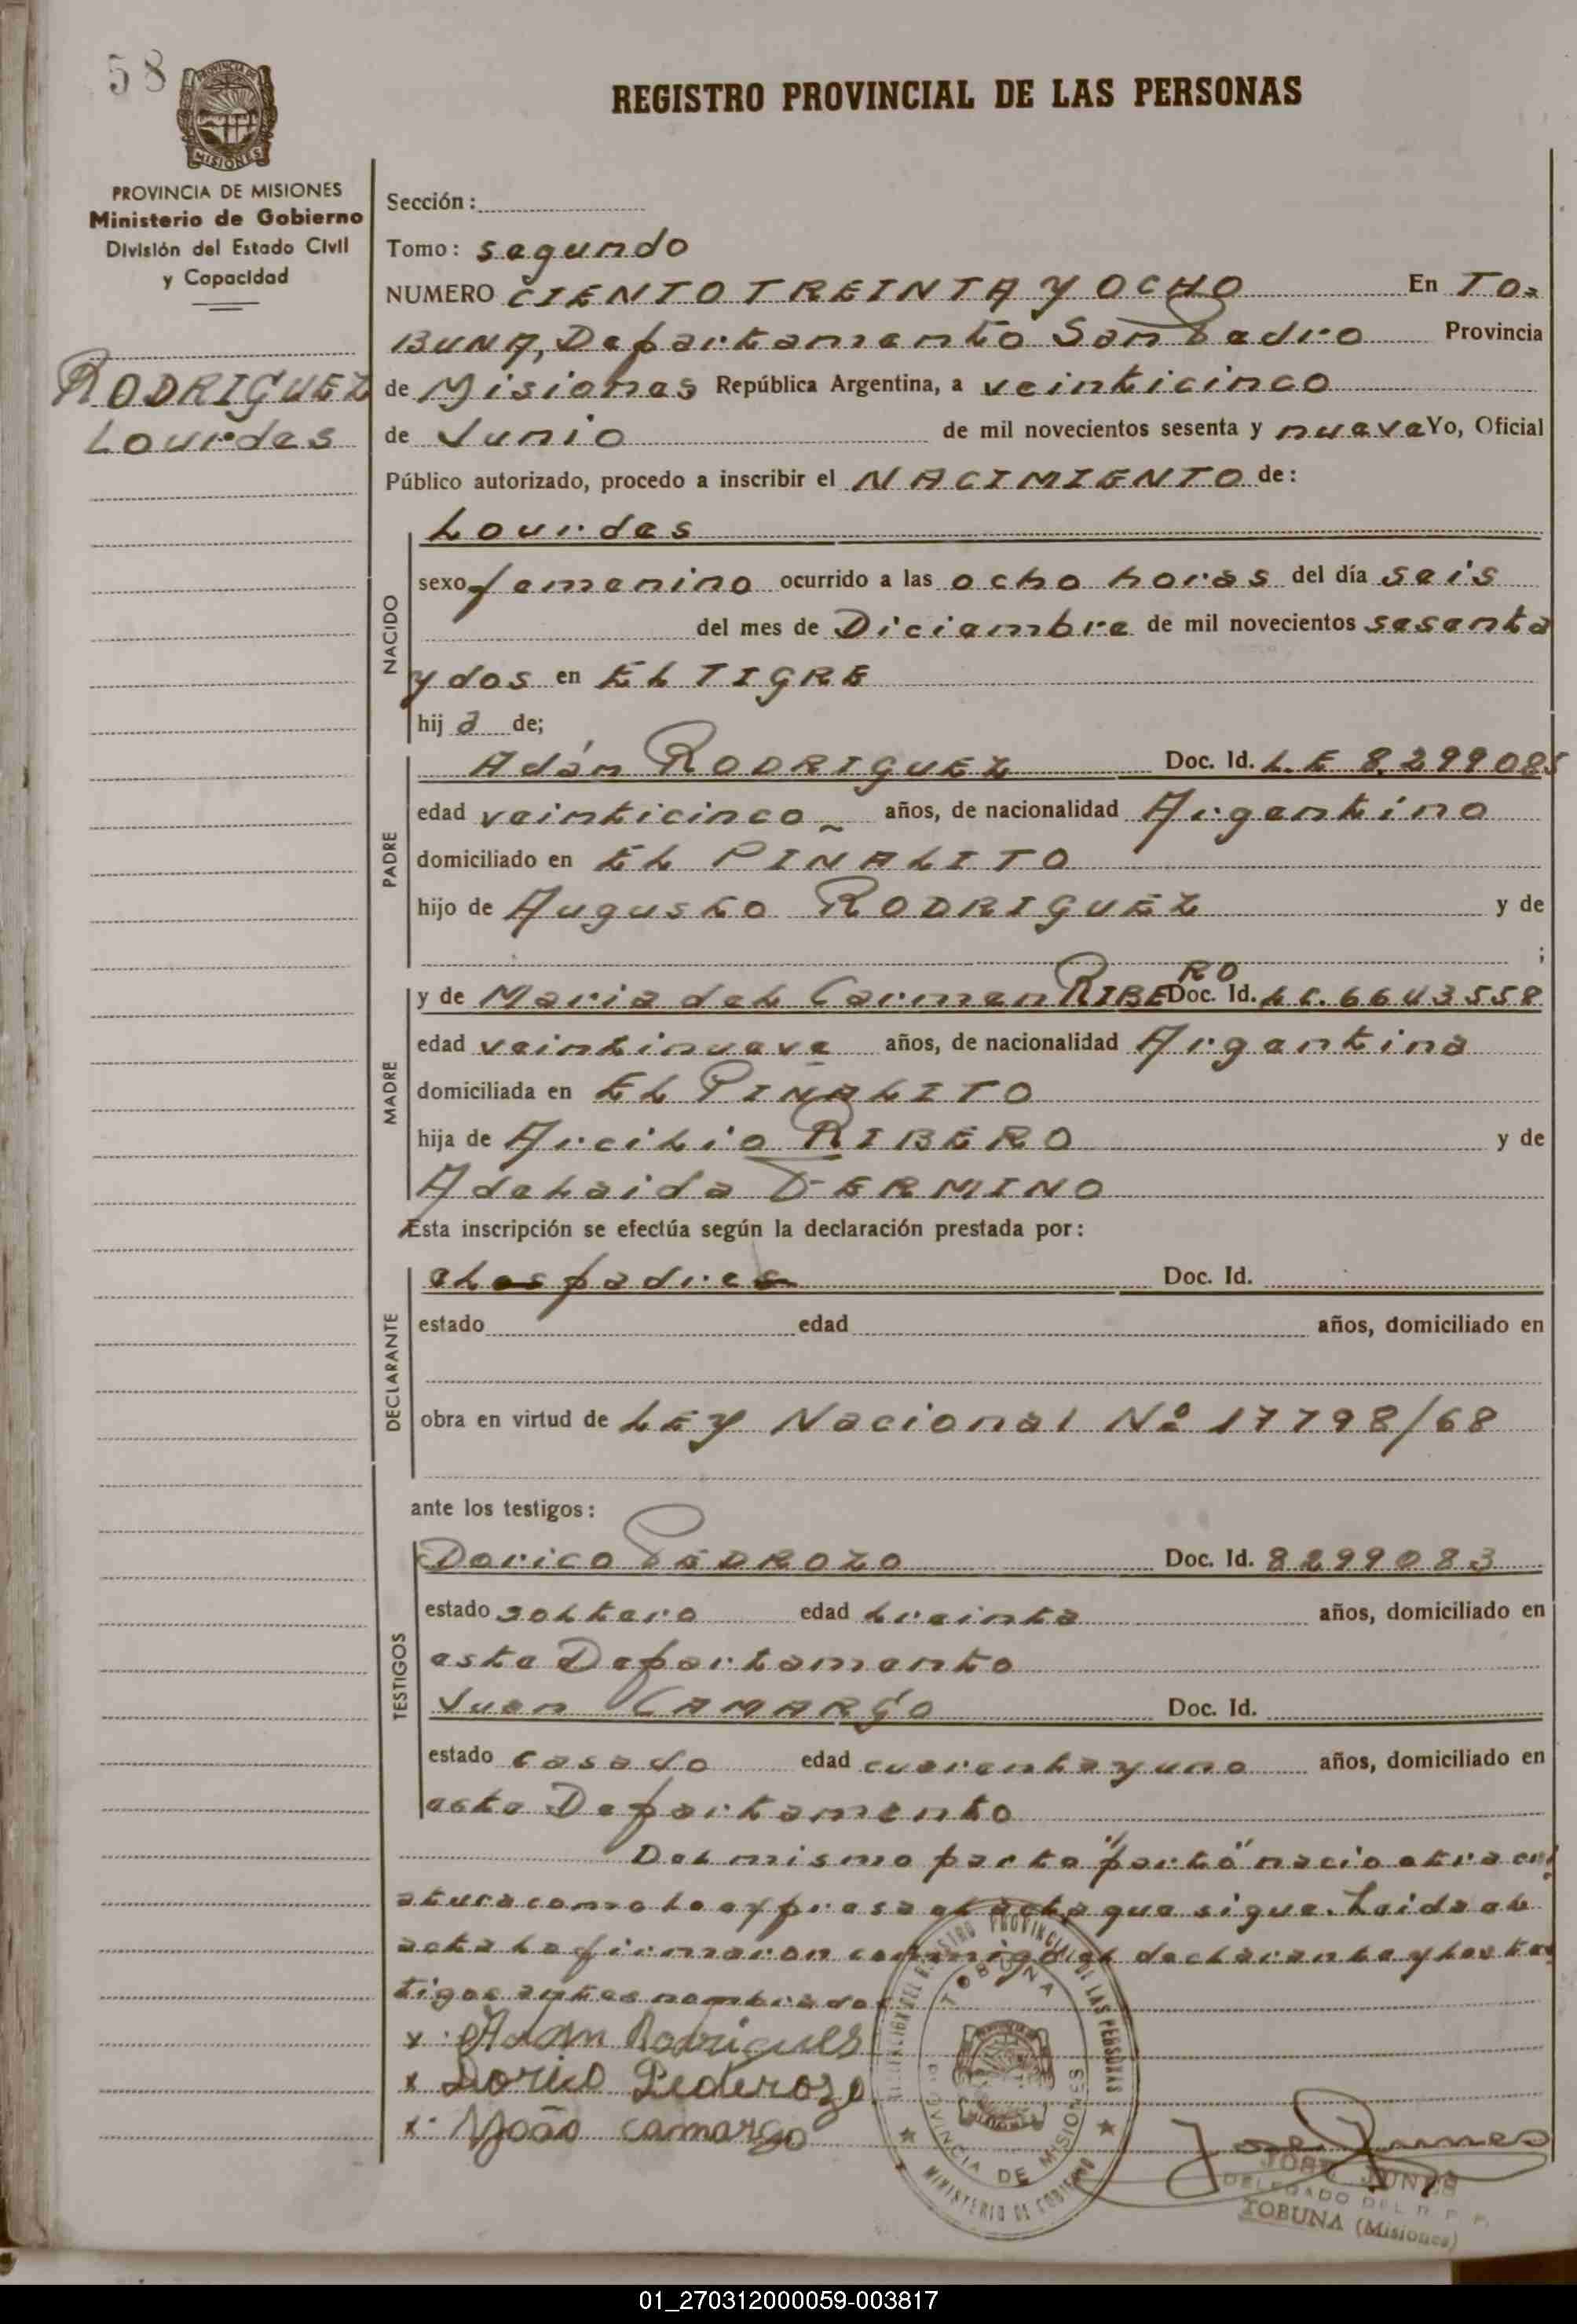 58
REGISTRO PROVINCIAL DE LAS PERSONAS
PROVINCIA DE
MISIONES
PROVINCIA DE MISIONES
Ministerio de Gobierno
División del Estado Civil
y Capacidad
RODRIGUEZ
Lourdes
Sección:
Tomo: segundo
NUMERO CIENTO TREINTA Y OCHO En TO=
BUNA, Departamento San Pedro Provincia
de Misiones República Argentina, a veinticinco
de Junio de mil novecientos sesenta y nueve Yo, Oficial
Público autorizado, procedo a inscribir el NACIMIENTO de:
NACIDO
Lourdes
sexo femenino ocurrido a las ocho horas del día seis
del mes de Diciembre de mil novecientos sesenta
y dos en EL TIGRE
hij a de;
PADRE
Adán RODRIGUEZ Doc. Id. L.E 8.299085
edad veinticinco años, de nacionalidad Argentino
domiciliado en EL PIÑALITO
hijo de Augusto RODRIGUEZ y de
;
MADRE
y de Maria del Carmen RIBERO Doc. Id. L.C. 6643558
edad veintinueve años, de nacionalidad Argentina
domiciliada en EL PIÑALITO
hija de Arcilio RIBERO y de
Adelaida FERMINO
Esta inscripción se efectúa según la declaración prestada por:
DECLARANTE
el padre Doc. Id.
estado edad años, domiciliado en
obra en virtud de LEY Nacional Nº 17798/68
ante los testigos:
TESTIGOS
Dorico PEDROZO Doc. Id. 8299083
estado soltero edad treinta años, domiciliado en
este Departamento
Juan CAMARGO Doc. Id.
estado casado edad cuarenta y uno años, domiciliado en
este Departamento
Del mismo parte "parto" nacio otra cri
atura como lo expresa el acta que sigue. Leida el
acta lo firmaron conmigo el declarante y los tes
tigos antes nombrados
x Adan Rodrigues
x Dorico Pederozo
x João camargo
DEL REGISTRO PROVINCIAL DE LAS PERSONAS
TOBUNA
PROVINCIA DE MISIONES
MINISTERIO DE GOBIERNO
JOSE JUNES
DELEGADO DEL R. P. P.
TOBUNA (Misiones)
01_270312000059-003817